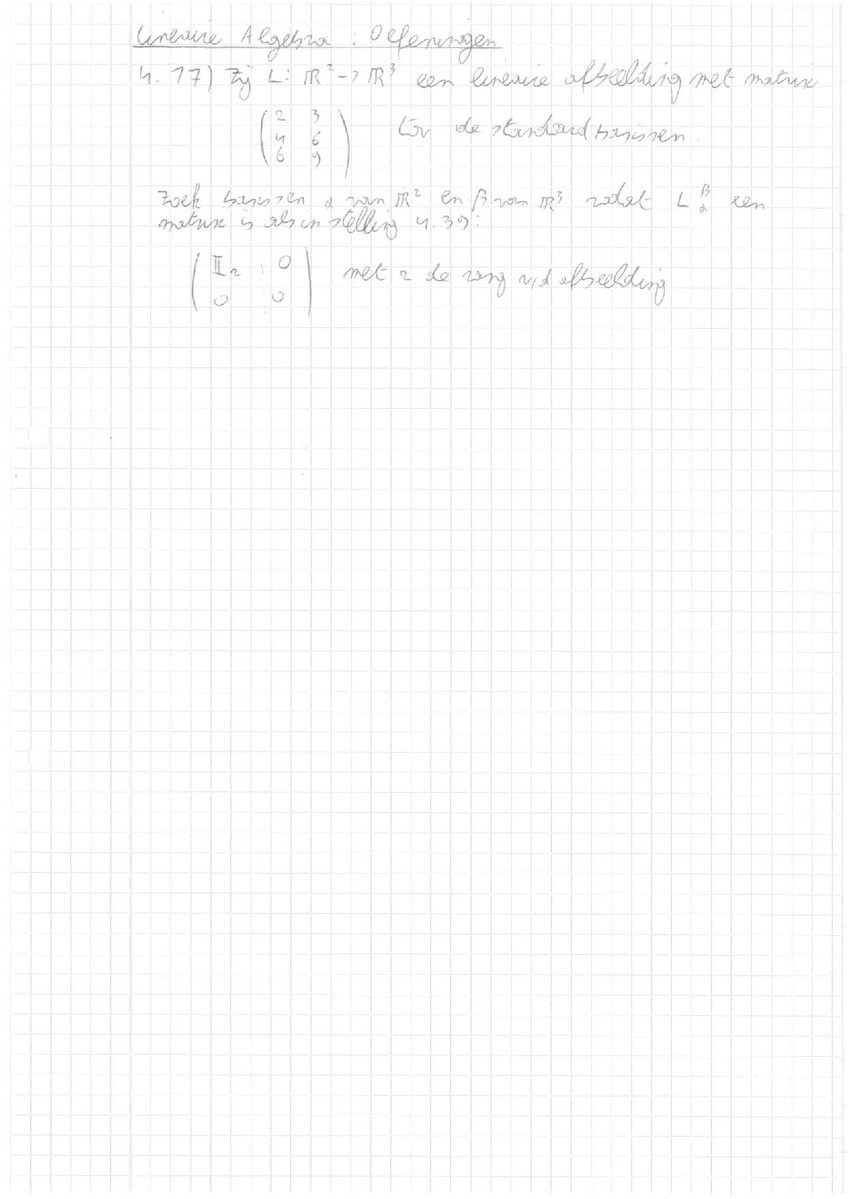 Lineaire Algebra : Oefeningen
4.17) Zij L: ℝ² -> ℝ³ een lineaire afbeelding met matrix
( 2 3 )
( 4 6 ) tov de standaardbasissen.
( 6 9 )
Zoek basissen α van ℝ² en β van ℝ³ zodat L_α^β een
matrix is als in stelling 4.39:
( 𝕀r 0 ) met r de rang v/d afbeelding
( 0 0 )